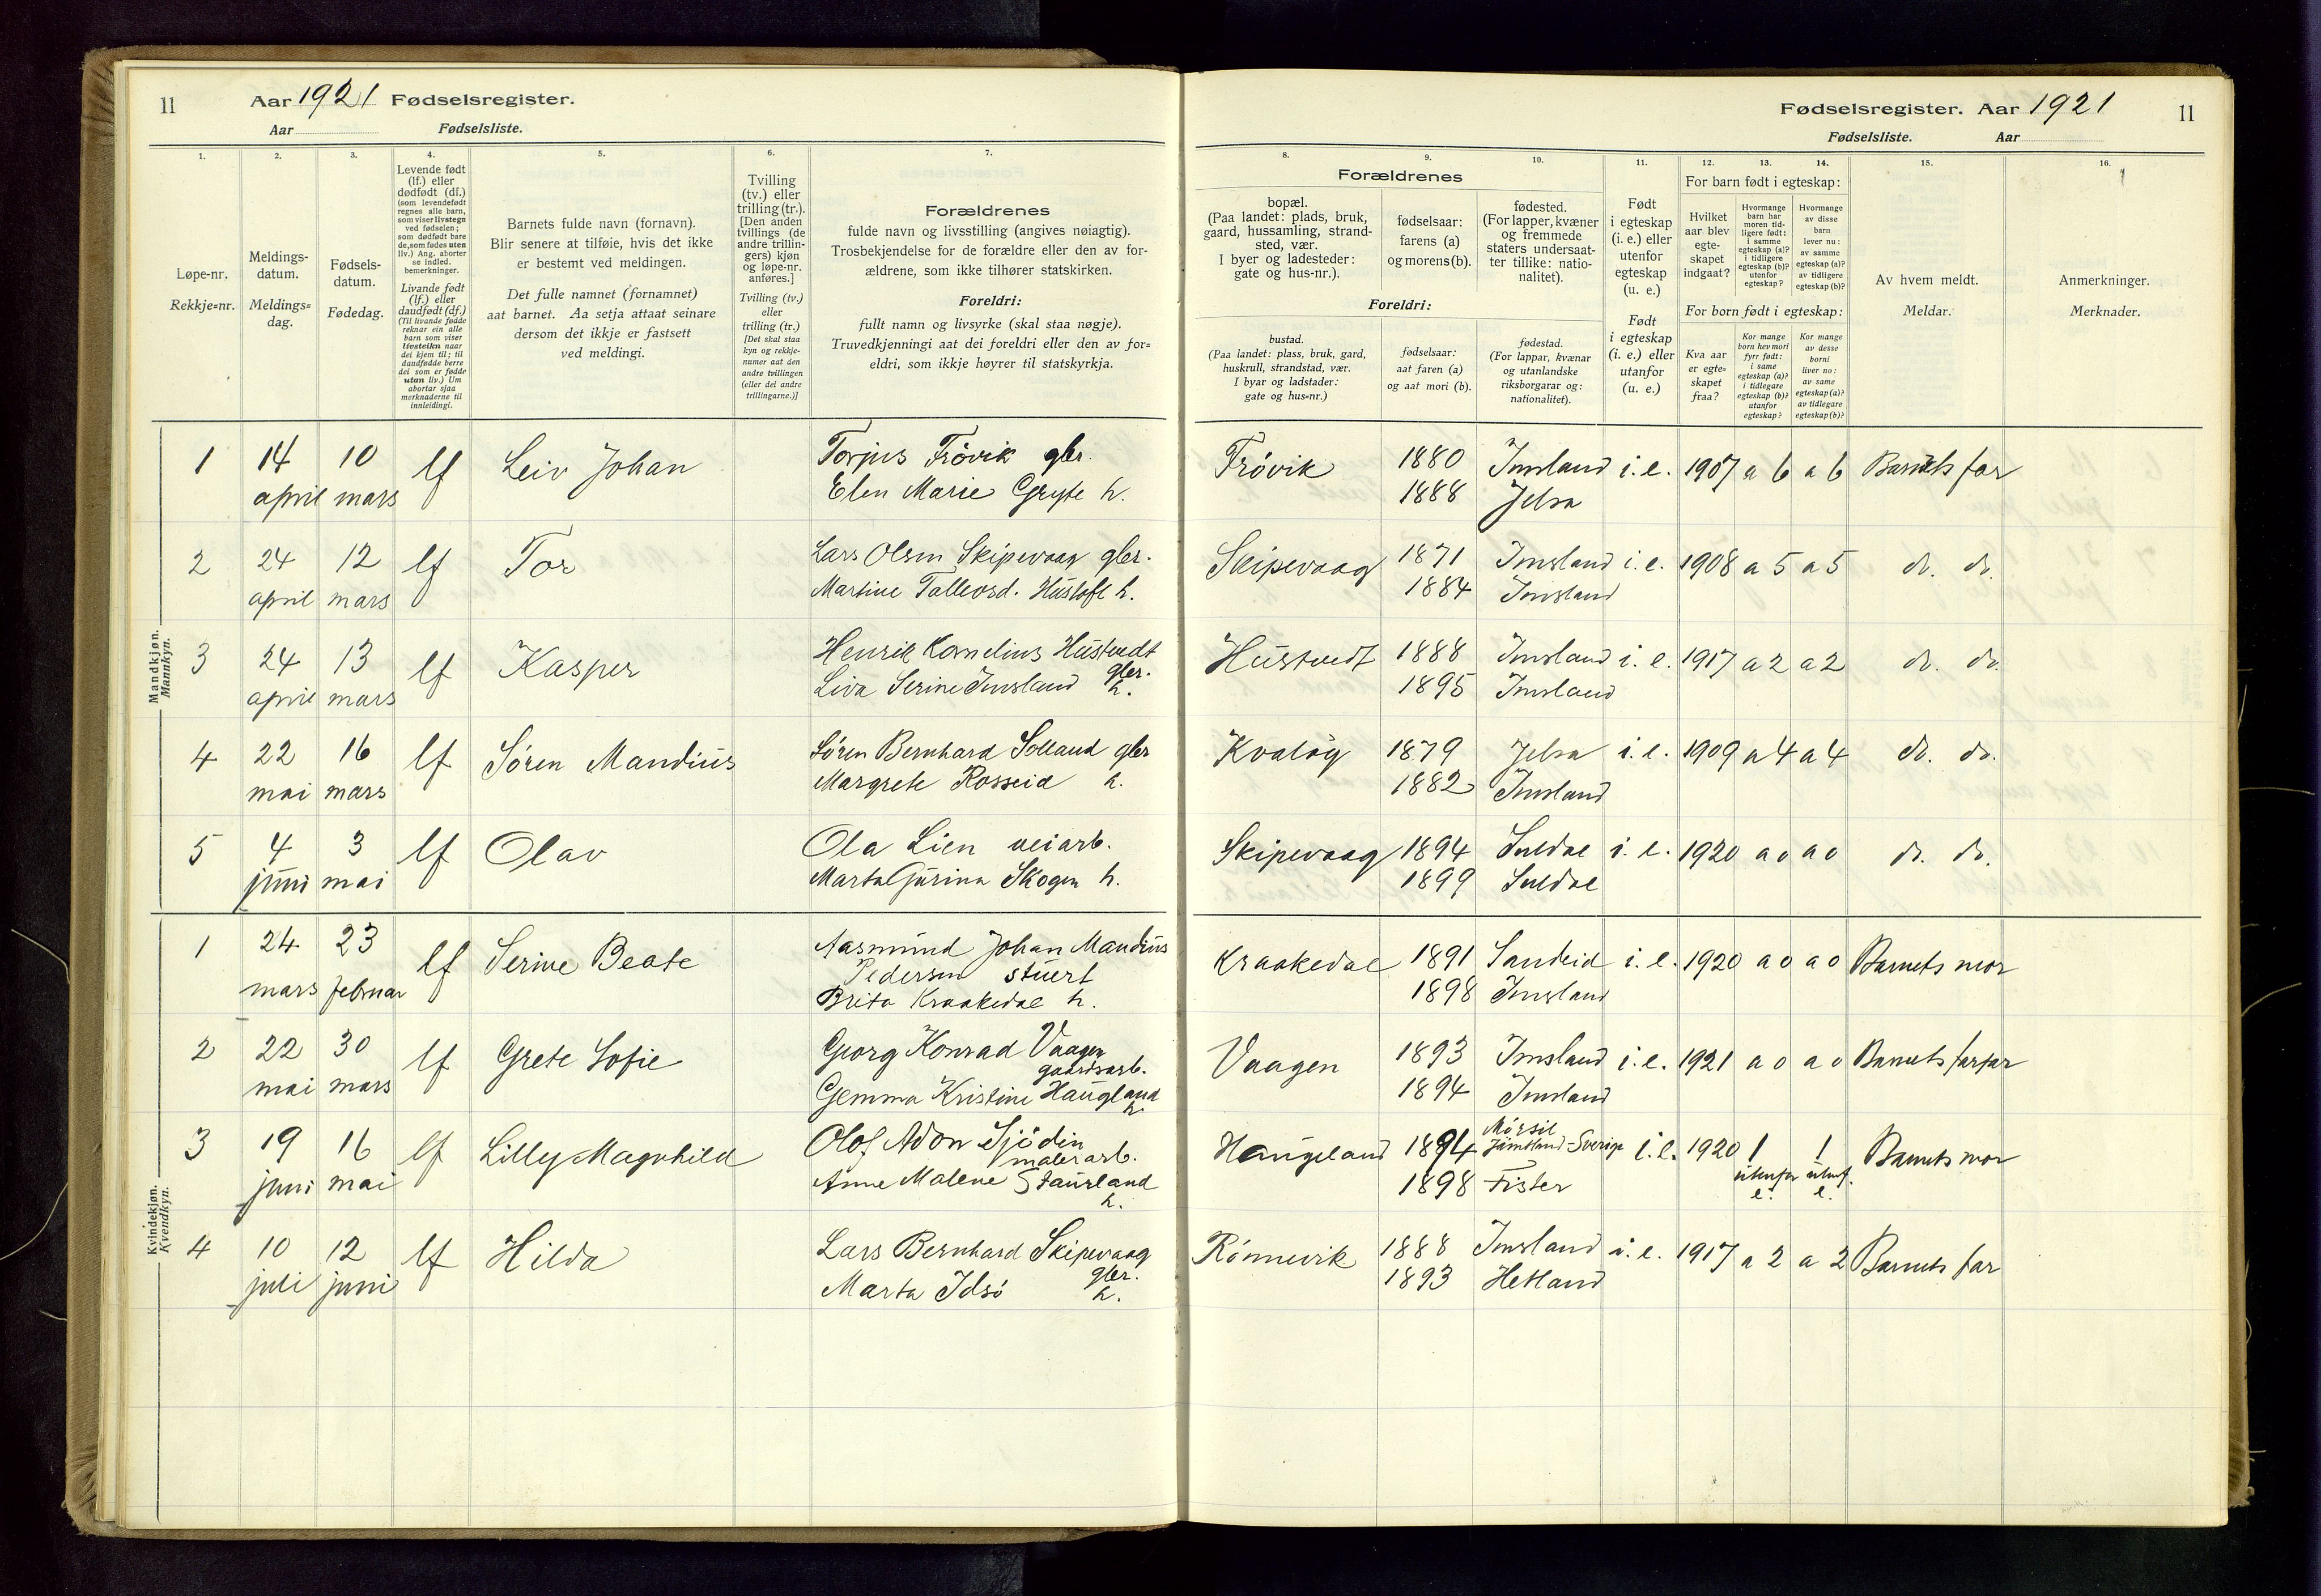 11 Aar 1921 Fødselsregister.
Aar Fødselsliste.
Fødselsregister. Aar 1921 11
Fødselsliste. Aar
1. 2. 3. 4. 5. 6. 7.
Løpe-nr.
Rekkje=nr.
Meldings-
datum.
Meldings=
dag.
Fødsels-
datum.
Fødedag.
Levende født
(lf.) eller
dødfødt (df.)
(som levendefødt
regnes alle barn,
som viser livstegn
ved fødselen;
som dødfødt bare
de, som fødes uten
liv.) Ang. aborter
se indled.
bemerkninger.
Livande født
(lf.) eller
daudfødt (df.)
(Til livande fødde
reknar ein alle
barn som viser
livsteikn naar
dei kjem til; til
daudfødde berre
dei som er fødde
utan liv.) Um
abortar sjaa
merknaderne til
innleidingi.
Barnets fulde navn (fornavn).
Blir senere at tilføie, hvis det ikke
er bestemt ved meldingen.
Det fulle namnet (fornamnet)
aat barnet. Aa setja attaat seinare
dersom det ikkje er fastsett
ved meldingi.
Tvilling
(tv.) eller
trilling (tr.).
[Den anden
tvillings (de
andre trillin-
gers) kjøn
og løpe-nr.
anføres.]
Tvilling (tv.)
eller
trilling (tr.)
[Det skal staa
kyn og rekkje-
numer aat den
andre tvillingen
(eller dei andre
trillingarne.)]
Forældrenes
fulde navn og livsstilling (angives nøiagtig).
Trosbekjendelse for de forældre eller den av for-
ældrene, som ikke tilhører statskirken.
Foreldri:
fullt namn og livsyrke (skal staa nøgje).
Truvedkjenningi aat dei foreldri eller den av for=
eldri, som ikkje høyrer til statskyrkja.
8. 9. 10. 11. 12. 13. 14. 15. 16.
Forældrenes
bopæl.
(Paa landet: plads, bruk,
gaard, hussamling, strand-
sted, vær.
I byer og ladesteder:
gate og hus-nr.).
fødselsaar:
farens (a)
og morens (b).
fødested.
(For lapper, kvæner
og fremmede
staters undersaat-
ter tillike: natio-
nalitet).
Foreldri:
bustad.
(Paa landet: plass, bruk, gard,
huskrull, strandstad, vær.
I byar og ladstader:
gate og hus=nr.)
fødselsaar:
aat faren (a)
og aat mori (b).
fødestad.
(For lappar, kvænar
og utanlandske
riksborgarar og:
nationalitet).
Født
i egteskap
(i. e.) eller
utenfor
egteskap
(u. e.)
Født
i egteskap
(i. e.) eller
utanfor
(u. e.)
For barn født i egteskap:
Hvilket
aar blev
egte-
skapet
indgaat?
Hvormange
barn har
moren tid-
ligere født:
i samme
egteskap (a)?
i tidligere
egteskap (b)?
utenfor
egteskap?
Hvormange
av disse
barn
lever nu:
av samme
egteskap (a)?
av tidligere
egteskap (b)?
For born født i egteskap:
Kva aar
er egte=
skapet
fraa?
Kor mange
born hev mori
fyrr født:
i same
egteskap (a)?
i tidlegare
egteskap (b)?
utanfor
egteskap?
Kor mange
av desse
borni
liver no:
av same
egteskap (a)?
av tidlegare
egteskap (b)?
Av hvem meldt.
Meldar.
Anmerkninger.
Merknader.
Mandkjøn.
Mannkyn.
1 14 april 10 mars lf Leiv Johan Torjus Frövik gbr. Frövik 1880 Imsland i. e. 1907 a 6 a 6 Barnets far
Elen Marie Gryte h. 1888 Jelsa
2 24 april 12 mars lf Tor Lars Olsen Skipevaag gbr. Skipevaag 1871 Imsland i. e. 1908 a 5 a 5 do. do.
Martine Talleivsd. Hustoft h. 1884 Imsland
3 24 april 13 mars lf Kasper Henrik Kornelius Hustvedt gbr. Hustvedt 1888 Imsland i. e. 1917 a 2 a 2 do. do.
Liva Serine Imsland h. 1895 Imsland
4 22 mai 16 mars lf Sören Mandius Sören Bernhard Solland gbr Kvalög 1879 Jelsa i. e. 1909 a 4 a 4 do. do.
Margrete Rosseid h. 1882 Imsland
5 4 juni 3 mai lf Olav Ola Lien veiarb. Skipevaag 1894 Suldal i. e. 1920 a 0 a 0 do. do.
Marta Gurina Skogen h. 1899 Suldal
Kvindekjøn.
Kvendkyn.
1 24 mars 23 februar lf Serine Beate Aasmund Johan Mandius Kraakedal 1891 Sandeid i. e. 1920 a 0 a 0 Barnets mor
Pedersen stuert
Brita Kraakedal h. 1898 Imsland
2 22 mai 30 mars lf Grete Sofie Georg Konrad Vaagen Vaagen 1893 Imsland i. e. 1921 a 0 a 0 Barnets farfar
gaardsarb.
Gemma Kristine Haugland h. 1894 Imsland
3 19 juni 16 mai lf Lilly Magnhild Olof Adon Sjödin Haugeland 1894 Mörsil Jämtland-Sverige i. e. 1920 1 utenfor e. 1 utenf. e. Barnets mor
malerarb.
Anne Malene Staurland h. 1898 Fister
4 10 juli 12 juni lf Hilda Lars Bernhard Skipevaag gbr. Rönnevik 1888 Imsland i. e. 1917 a 2 a 2 Barnets far
Marta Idsö h. 1893 Hetland